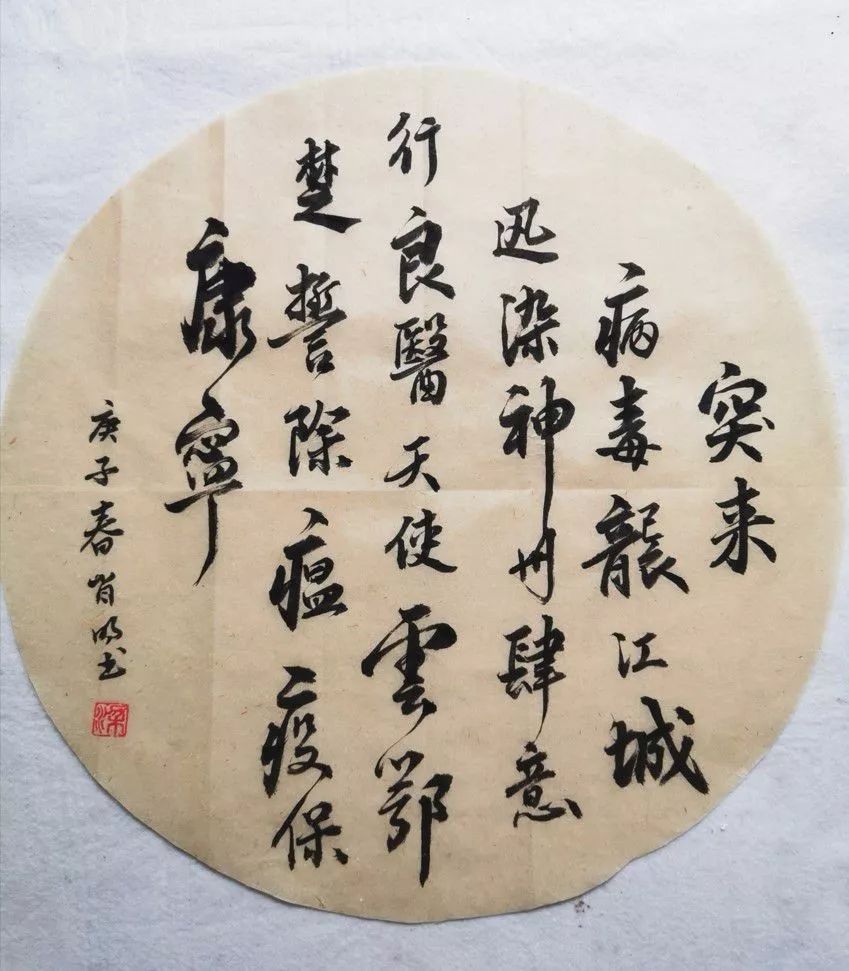 突来
病毒襲江城
迅染神州肆意
行良醫天使雲鄂
楚誓除瘟疫保
康寧
庚子春肖明书
梁